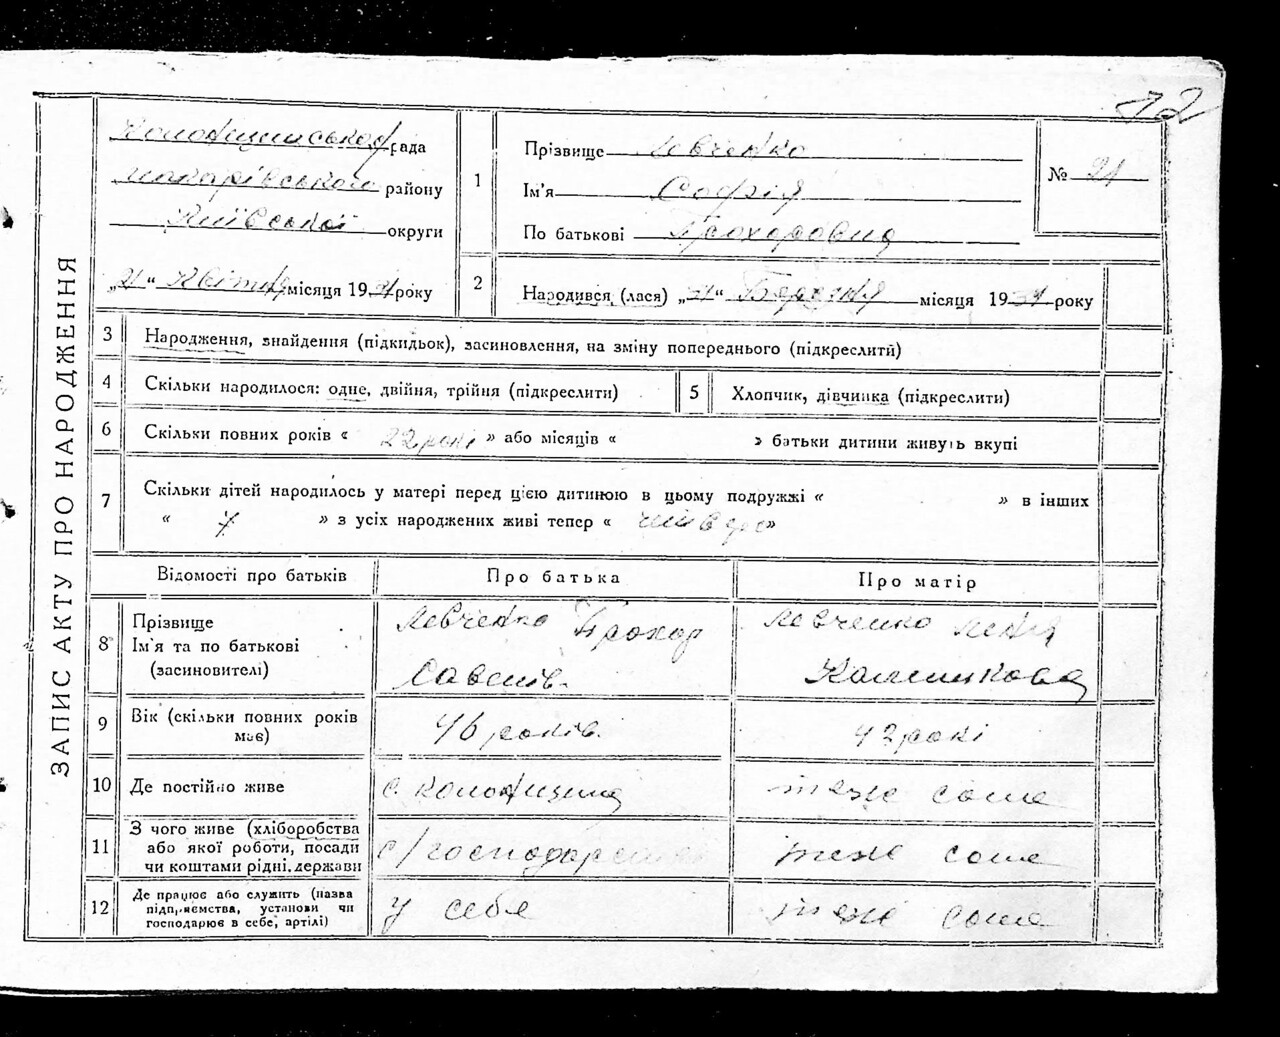 12
ЗАПИС АКТУ ПРО НАРОДЖЕННЯ
рада
району
Київської округи
„21“ Квітня місяця 19 року
1
Прізвище Левченко
Ім'я Софія
По батькові Прохоровна
№ 21
2
Народився (лася) „ “ Березня місяця 19 року
3 Народження, знайдення (підкидьок), засиновлення, на зміну попереднього (підкреслити)
4 Скільки народилося: одне, двійня, трійня (підкреслити)
5 Хлопчик, дівчинка (підкреслити)
6 Скільки повних років « 22 рокі » або місяців « » батьки дитини живуть вкупі
7 Скільки дітей народилось у матері перед цією дитиною в цьому подружжі « » в інших
« » з усіх народжених живі тепер « »
Відомості про батьків Про батька Про матір
8 Прізвище
Ім'я та по батькові
(засиновителі)
Левченко Прохор
Левченко
9 Вік (скільки повних років
має)
46 років.
42 рокі
10 Де постійно живе
с.
теж саме
11 З чого живе (хліборобства
або якої роботи, посади
чи коштами рідні, держави
с/господарство
теж саме
12 Де працює або служить (назва
підприємства, установи чи
господарює в себе, артілі)
у себе
теж саме